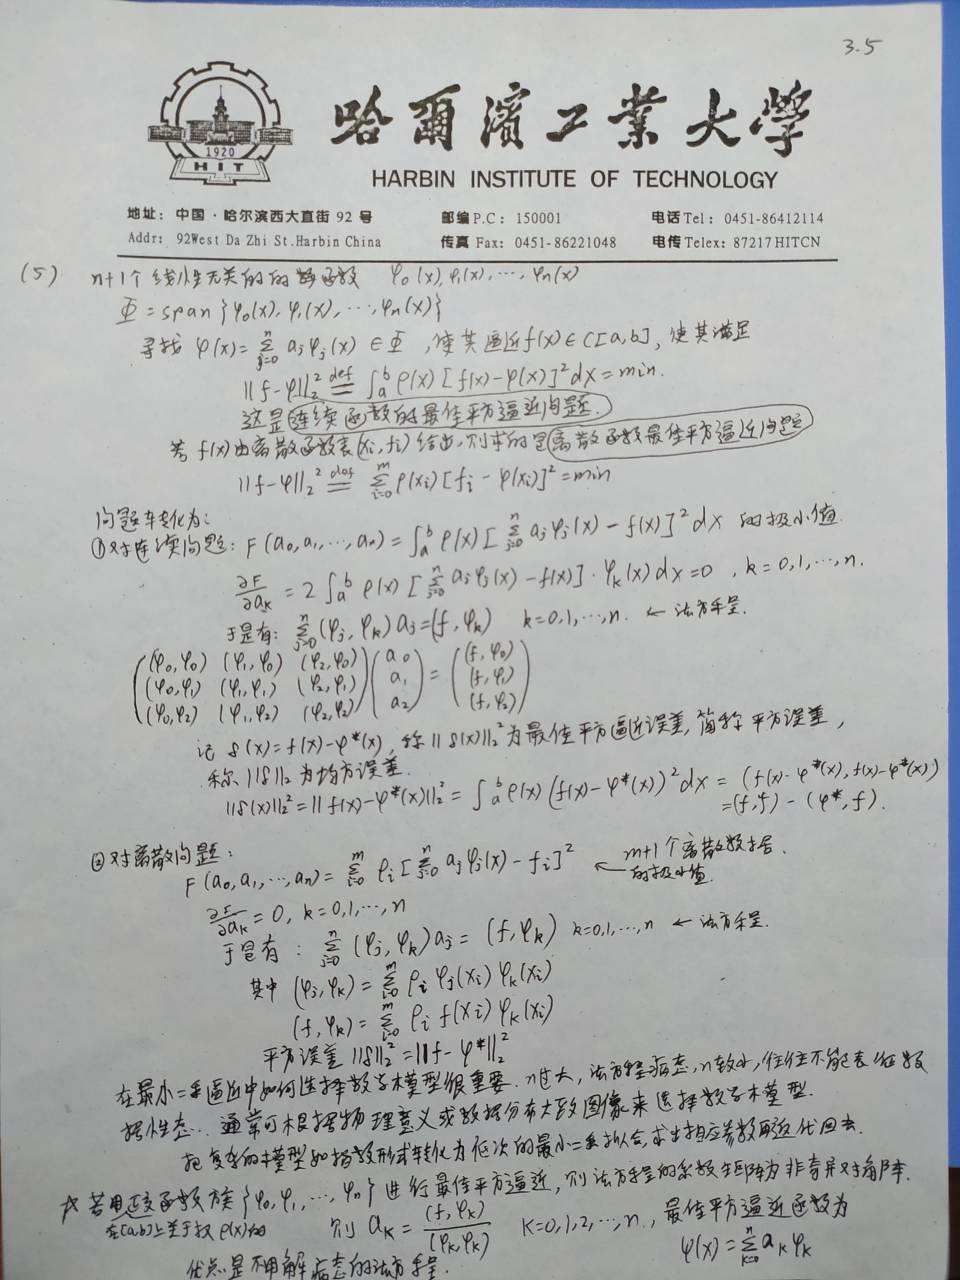 3.5
1920
HIT
哈爾濱工業大學
HARBIN INSTITUTE OF TECHNOLOGY
地址：中国·哈尔滨西大直街 92 号 邮编 P.C：150001 电话 Tel：0451-86412114
Addr: 92West Da Zhi St.Harbin China 传真 Fax: 0451-86221048 电传 Telex: 87217 HITCN
(5) n+1个线性无关的的函数 φ₀(x), φ₁(x), ⋯, φn(x)
Φ = span {φ₀(x), φ₁(x), ⋯, φn(x)}
寻找 φ(x) = Σ_{j=0}^{n} ajφj(x) ∈ Φ, 使其逼近 f(x) ∈ C[a,b], 使其满足
||f-φ||₂² def= ∫_a^b ρ(x) [f(x)-φ(x)]² dx = min.
这是连续函数的最佳平方逼近问题.
若 f(x) 由离散函数表 (xi, fi) 给出, 则求的是离散函数最佳平方逼近问题
||f-φ||₂² def= Σ_{i=0}^{m} ρ(xi) [fi - φ(xi)]² = min
问题转化为:
①对连续问题: F(a₀,a₁,⋯,an) = ∫_a^b ρ(x) [Σ_{j=0}^{n} ajφj(x) - f(x)]² dx 的极小值.
∂F/∂ak = 2 ∫_a^b ρ(x) [Σ_{j=0}^{n} ajφj(x) - f(x)] · φk(x) dx = 0, k=0,1,⋯,n.
于是有: Σ_{j=0}^{n} (φj, φk) aj = (f, φk) k=0,1,⋯,n. ← 法方程.
(φ₀,φ₀) (φ₁,φ₀) (φ₂,φ₀) a₀ (f,φ₀)
(φ₀,φ₁) (φ₁,φ₁) (φ₂,φ₁) a₁ = (f,φ₁)
(φ₀,φ₂) (φ₁,φ₂) (φ₂,φ₂) a₂ (f,φ₂)
记 δ(x) = f(x)-φ*(x), 称 ||δ(x)||₂² 为最佳平方逼近误差, 简称平方误差,
称 ||δ||₂ 为均方误差.
||δ(x)||₂² = ||f(x)-φ*(x)||₂² = ∫_a^b ρ(x) (f(x)-φ*(x))² dx = (f(x)-φ*(x), f(x)-φ*(x))
= (f,f) - (φ*,f).
②对离散问题:
F(a₀,a₁,⋯,an) = Σ_{i=0}^{m} ρi [Σ_{j=0}^{n} ajφj(x) - fi]² ← m+1个离散数据
的极小值.
∂F/∂ak = 0, k=0,1,⋯,n
于是有: Σ_{j=0}^{n} (φj, φk) aj = (f, φk) k=0,1,⋯,n ← 法方程.
其中 (φj, φk) = Σ_{i=0}^{m} ρi φj(xi) φk(xi)
(f, φk) = Σ_{i=0}^{m} ρi f(xi) φk(xi)
平方误差 ||δ||₂² = ||f-φ*||₂²
在最小二乘逼近中如何选择数学模型很重要. n过大, 法方程病态, n较小, 往往不能表征数
据性态. 通常可根据物理意义或数据分布大致图像来选择数学模型.
把复杂的模型如指数形式转化为低次的最小二乘拟合, 求出相应参数再返代回去.
☆若用正交函数族 {φ₀, φ₁, ⋯, φn} 进行最佳平方逼近, 则法方程的系数矩阵为非奇异对角阵.
在(a,b)上关于权 ρ(x) 则 ak = (f,φk)/(φk,φk) k=0,1,2,⋯,n, 最佳平方逼近函数为
φ(x) = Σ_{k=0}^{n} akφk
优点是不用解病态的法方程.